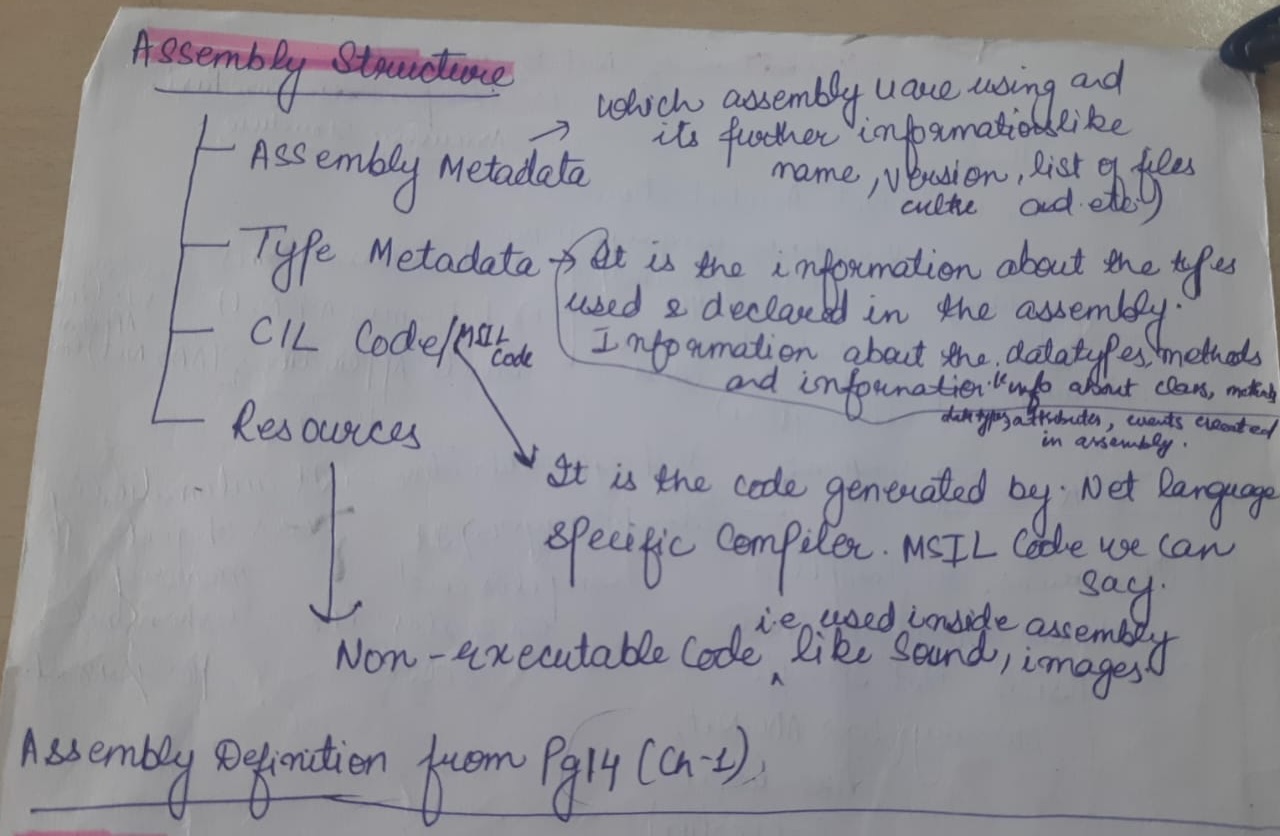 Assembly Structure
Assembly Metadata → which assembly u are using and
its further information like
name, version, list of files
cultre and etc)
Type Metadata → It is the information about the types
used & declared in the assembly.
Information about the datatypes, methods
and information info about class, methods
datatypes, attributes, events created
in assembly.
CIL Code/MSIL
Code
Resources
It is the code generated by .Net language
specific Compiler. MSIL Code we can
say.
i.e used inside assembly
Non-executable Code ^ like Sound, images
Assembly Definition from Pg14 (Ch-1)